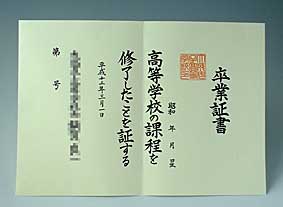 卒業証書
昭和 年 月 日生
高等学校の課程を
修了したことを証する
平成十五年三月一日
第 号